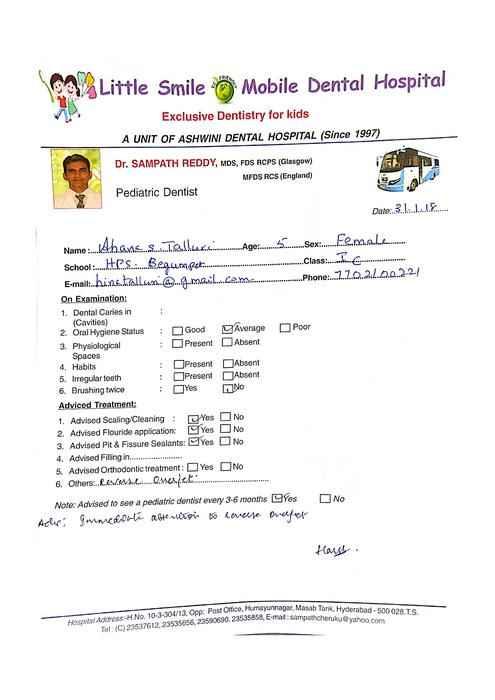 Little Smile Mobile Dental Hospital
Exclusive Dentistry for kids
A UNIT OF ASHWINI DENTAL HOSPITAL (Since 1997)
Dr. SAMPATH REDDY, MDS, FDS RCPS (Glasgow)
MFDS RCS (England)
Pediatric Dentist
Date: 31.1.18
Name: Ahana S. Talluri Age: 5 Sex: Female
School: HPS Begumpet Class: I C
E-mail: @gmail.com Phone: 7702100221
On Examination:
1. Dental Caries in :
(Cavities)
2. Oral Hygiene Status : Good Average Poor
3. Physiological : Present Absent
Spaces
4. Habits : Present Absent
5. Irregular teeth : Present Absent
6. Brushing twice : Yes No
Adviced Treatment:
1. Advised Scaling/Cleaning : Yes No
2. Advised Flouride application: Yes No
3. Advised Pit & Fissure Sealants: Yes No
4. Advised Filling in......................
5. Advised Orthodontic treatment : Yes No
6. Others: Reverse Overjet
Note: Advised to see a pediatric dentist every 3-6 months Yes No
Adv: Immediate attention to reverse overjet
Hospital Address:-H.No. 10-3-304/13, Opp: Post Office, Humayunnagar, Masab Tank, Hyderabad - 500 028.T.S.
Tel : (C) 23537612, 23535656, 23590690. 23535858, E-mail : sampathcheruku@yahoo.com